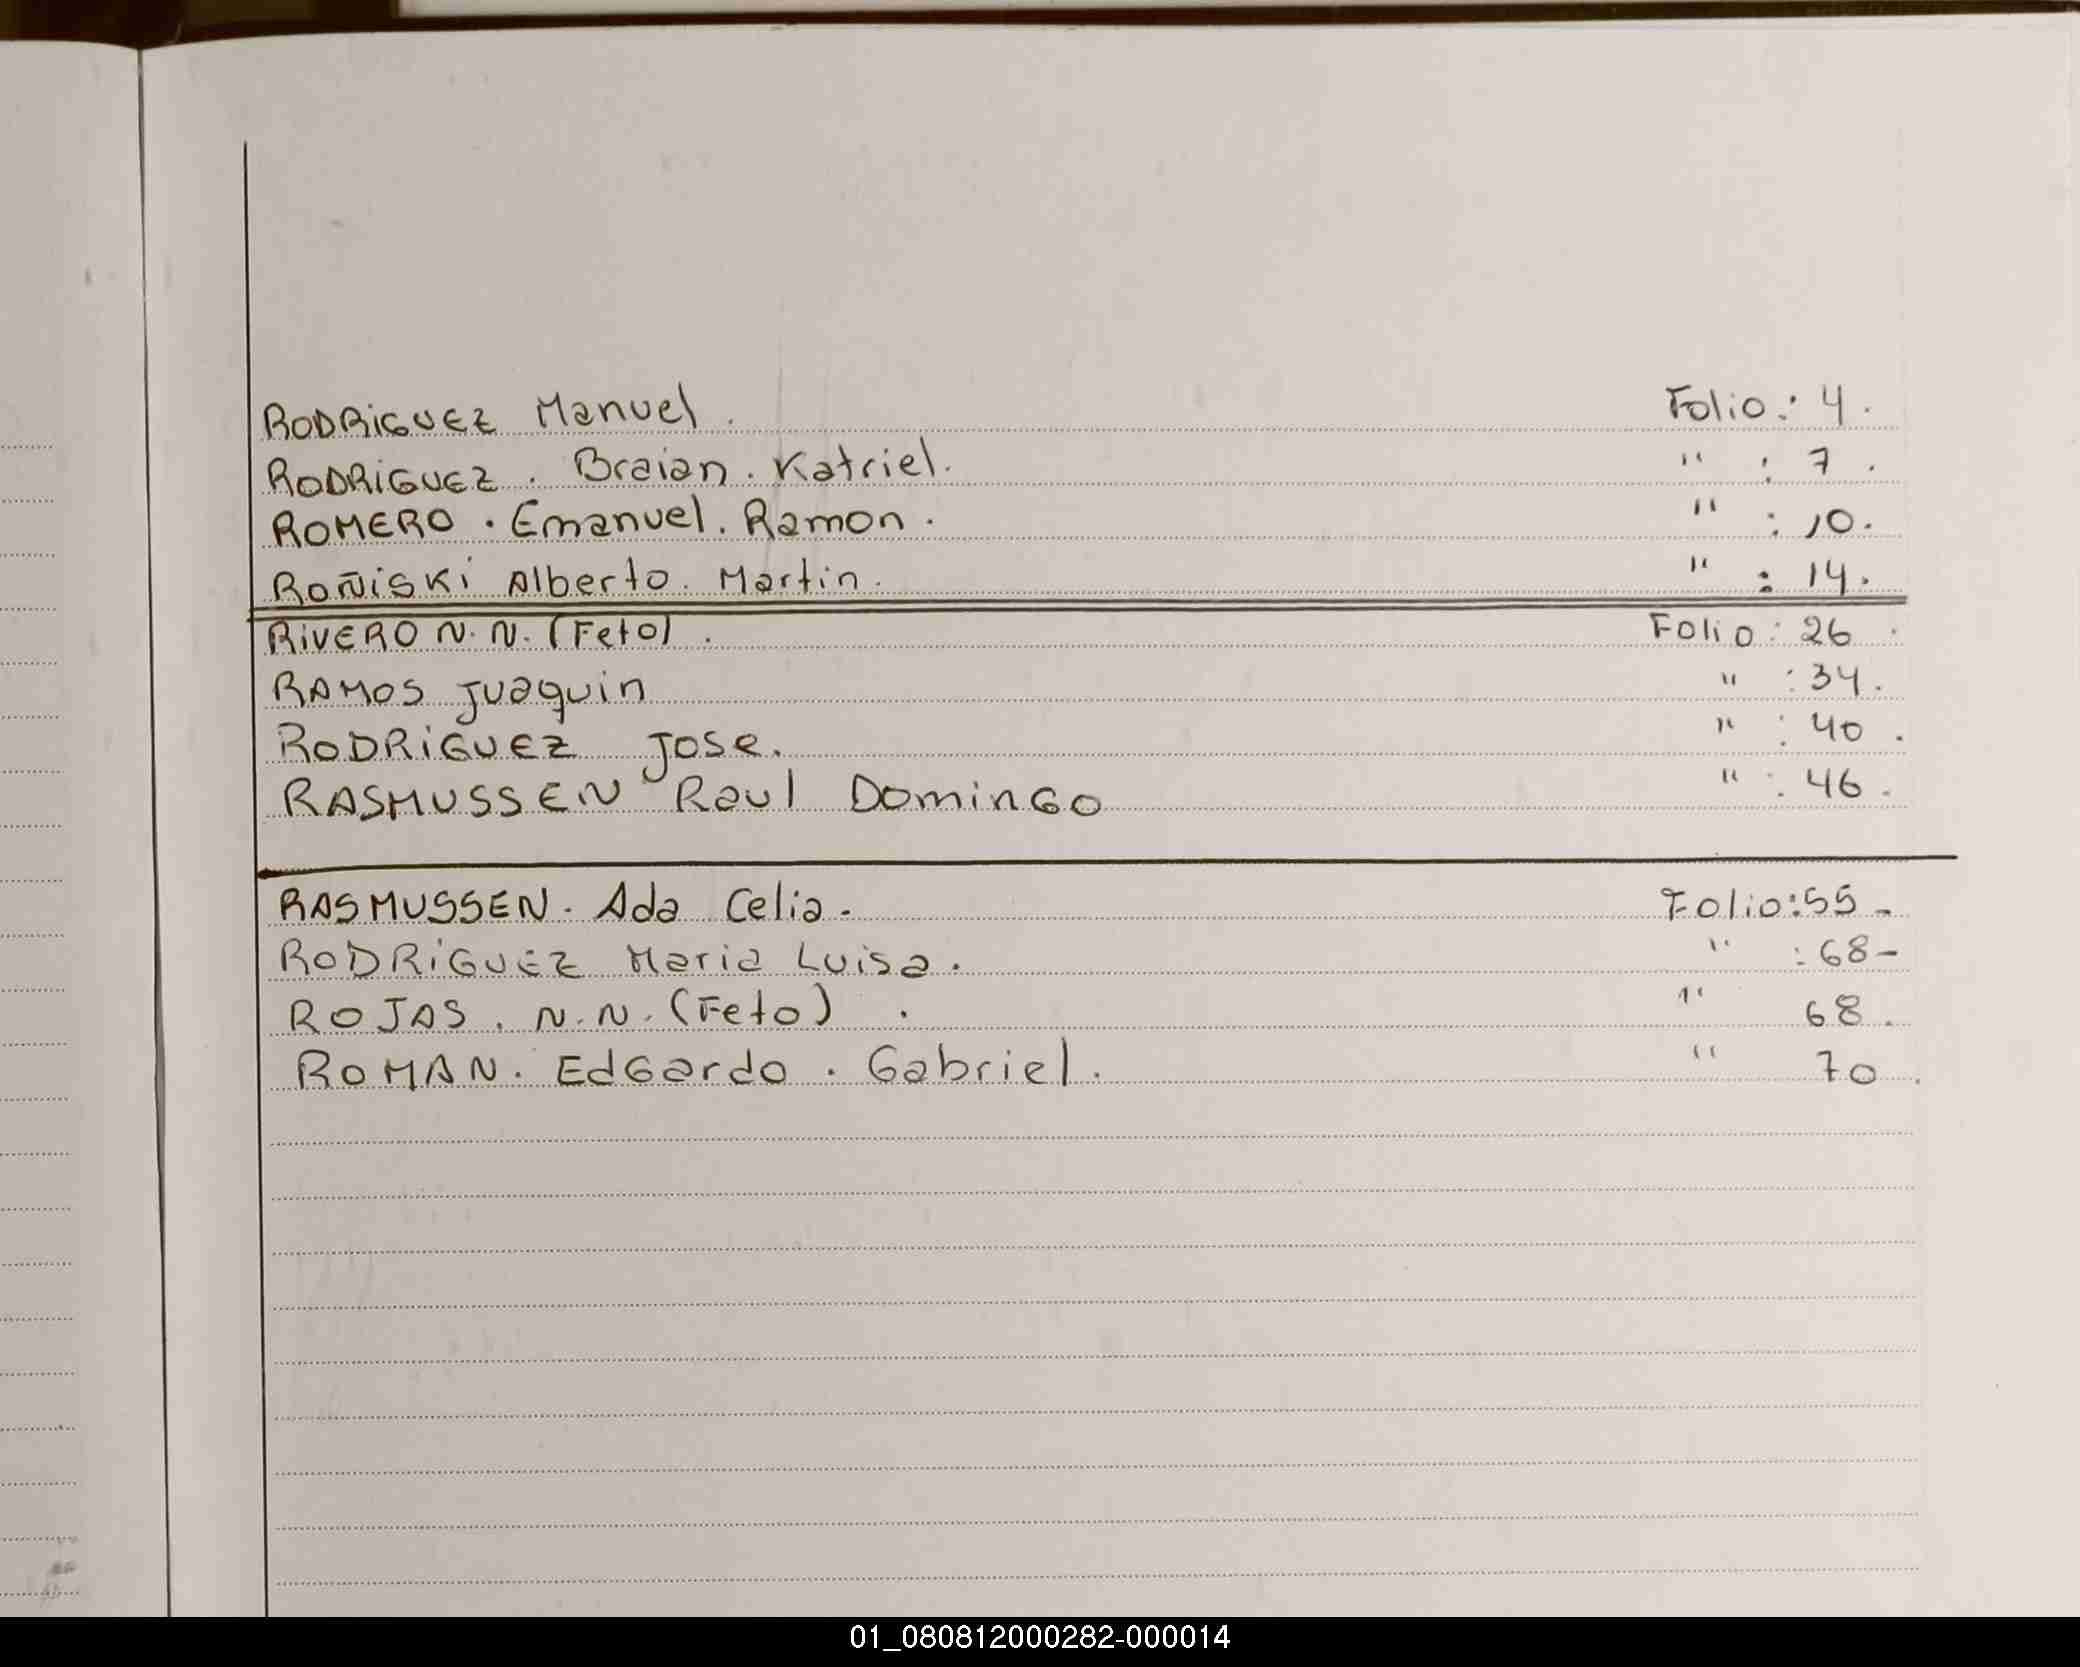 RODRIGUEZ Manuel. Folio: 4.
RODRIGUEZ. Braian. Katriel. " : 7.
ROMERO. Emanuel. Ramon. " : 10.
ROÑISKI Alberto. Martin. " : 14.
RIVERO N.N. (Feto). Folio: 26.
RAMOS Juaquin " : 34.
RODRIGUEZ Jose. " : 40.
RASMUSSEN Raul Domingo " : 46.
RASMUSSEN. Ada Celia. Folio: 55-
RODRIGUEZ Maria Luisa. " : 68-
ROJAS. N.N. (Feto). " 68.
ROMAN. Edgardo. Gabriel. " 70.
01_080812000282-000014